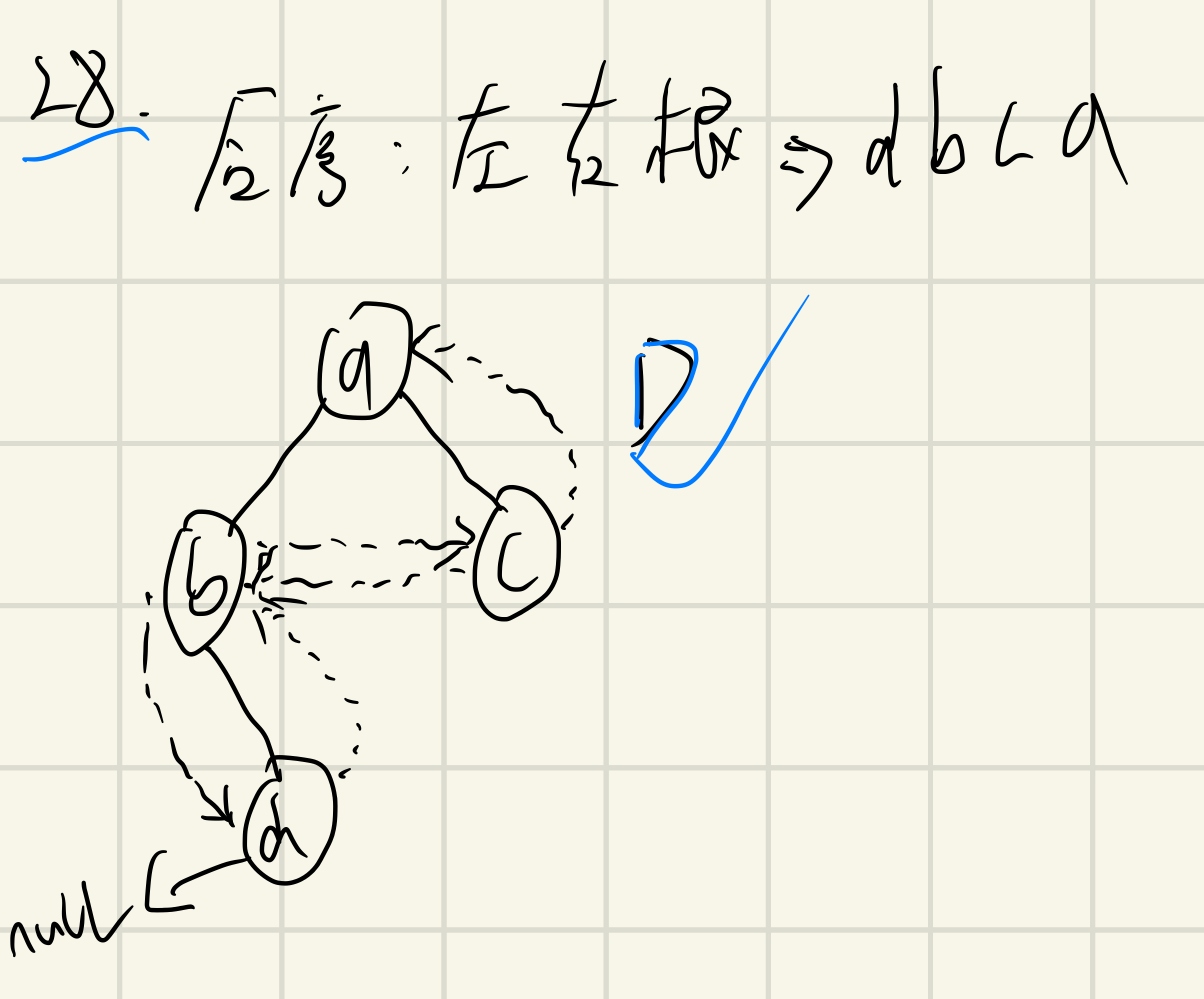 28. 后序：左右根 ⇒ d b c a
a
D
b
c
d
null